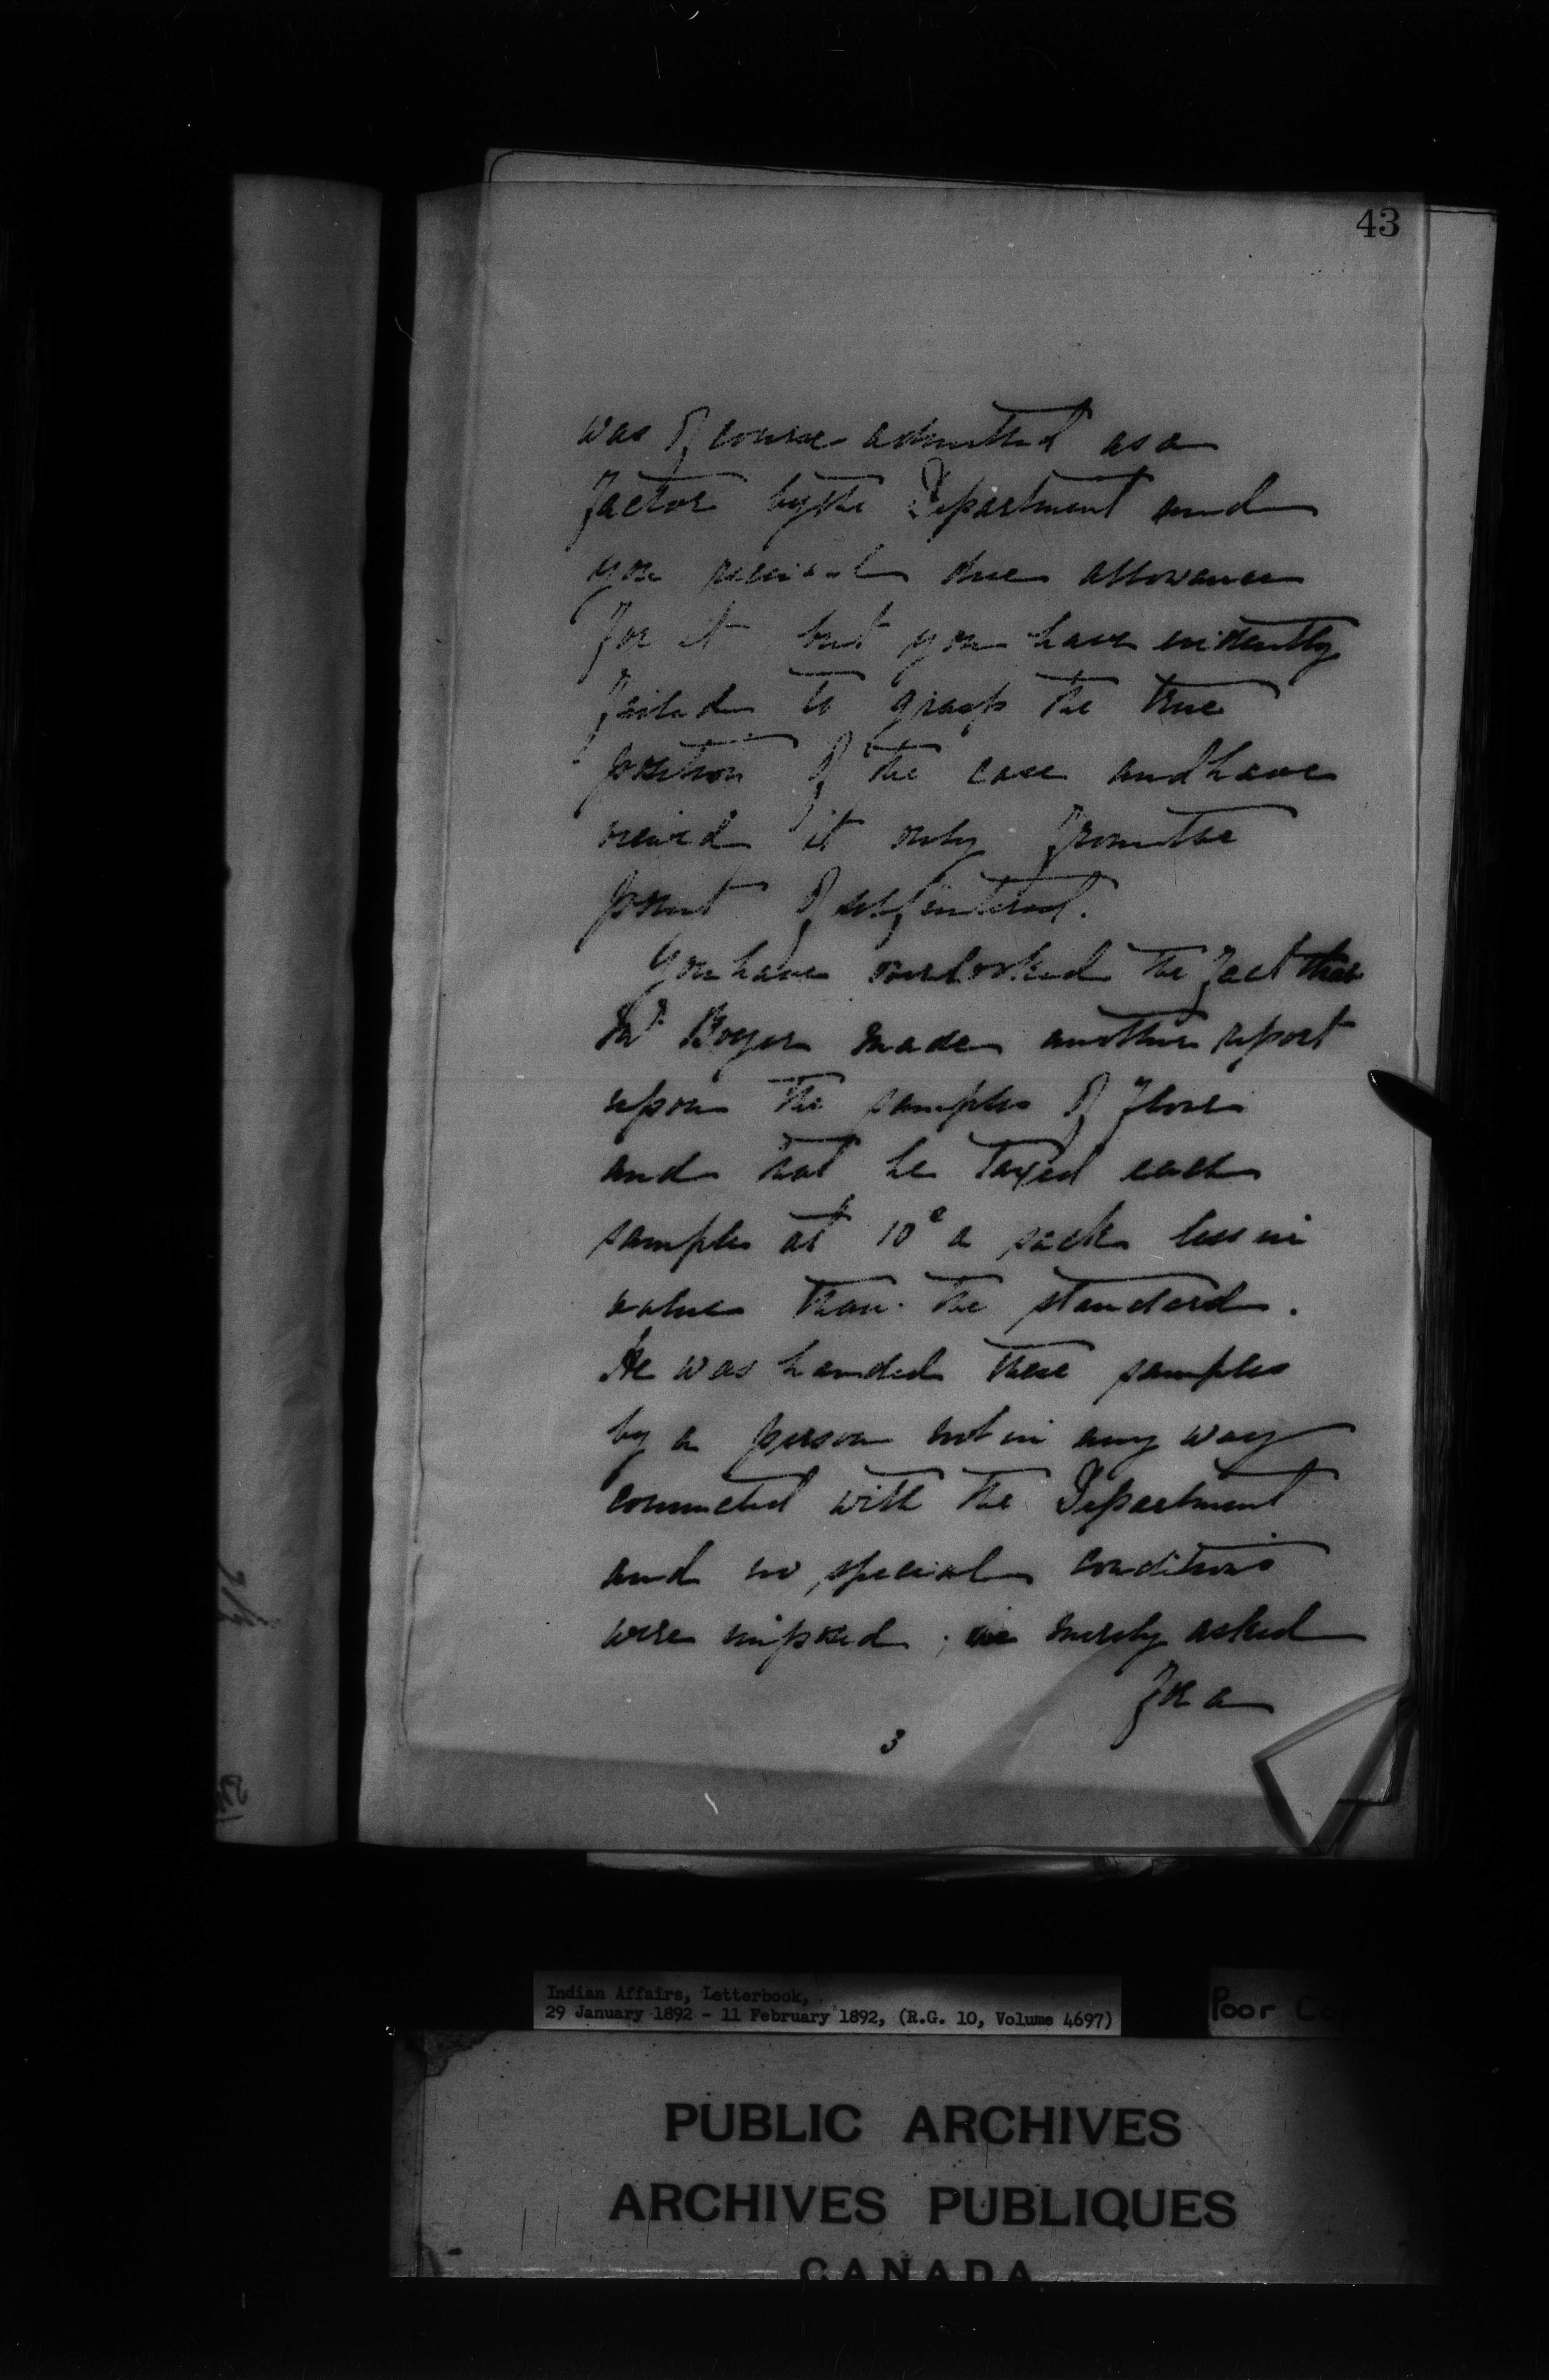 43
was of course admitted as a
factor by the Department and
you received due allowance
for it but you have evidently
failed to grasp the true
position of the case and have
viewed it only from the
point of self interest.
You have overlooked the fact that
Mr Boyer made another report
upon the samples of flour
and that he taxed each
sample at 10c a sack less in
value than the standard.
He was handed these samples
by a person not in any way
connected with the Department
and no special conditions
were imposed; we merely asked
for a
3
Indian Affairs, Letterbook,
29 January 1892 - 11 February 1892, (R.G. 10, Volume 4697)
Poor
PUBLIC ARCHIVES
ARCHIVES PUBLIQUES
CANADA